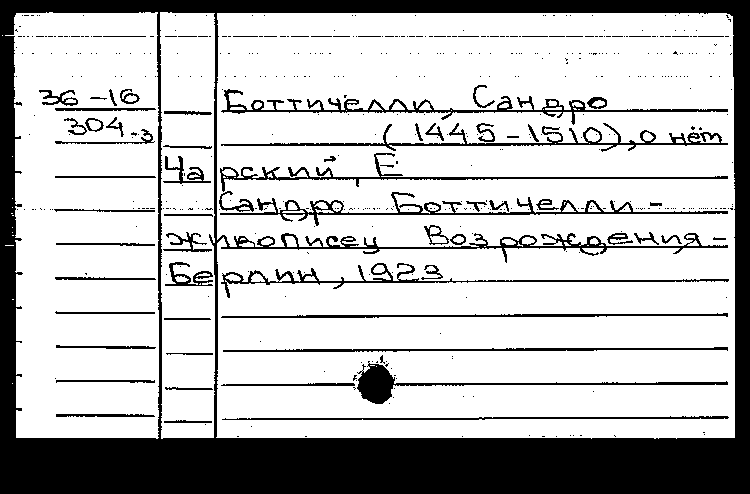 36-16
304-3
Боттичелли, Сандро
(1445-1510), о нём
Чарский, Е
Сандро Боттичелли -
живописец Возрождения -
Берлин, 1923.